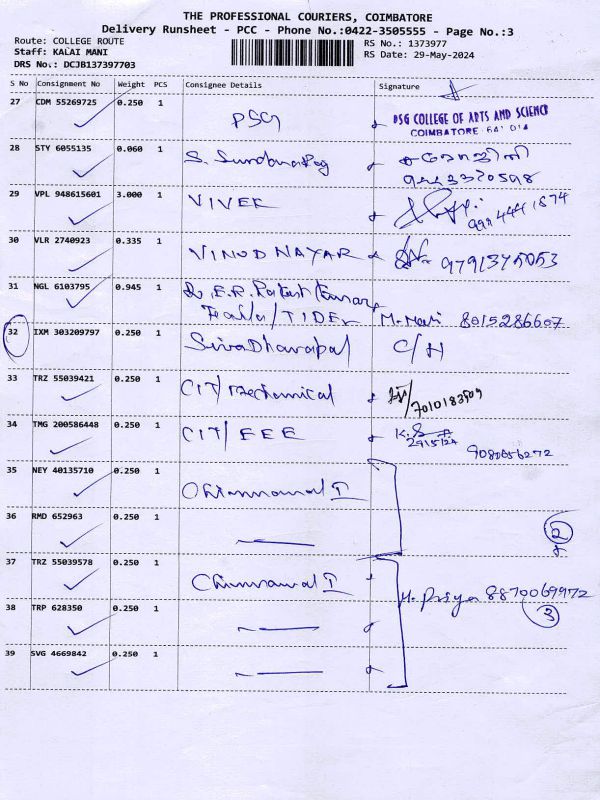 THE PROFESSIONAL COURIERS, COIMBATORE
Delivery Runsheet - PCC - Phone No.:0422-3505555 - Page No.:3
Route: COLLEGE ROUTE
RS No.: 1373977
Staff: KALAI MANI
RS Date: 29-May-2024
DRS No.: DCJB137397703
S No Consignment No Weight PCS Consignee Details Signature
27 CDM 55269725 0.250 1 PSG PSG COLLEGE OF ARTS AND SCIENCE
COIMBATORE 641 014
28 STY 6055135 0.060 1 S.
29 VPL 948615601 3.000 1 VIVEK
30 VLR 2740923 0.335 1 VINOD NAYAR 9791375053
31 NGL 6103795 0.945 1
M. Mani 8015286607
32 IXM 303209797 0.250 1 C/H
33 TRZ 55039421 0.250 1 CIT/Mechanical 7010183509
34 TMG 200586448 0.250 1 CIT/EEE K.S
29/5/24
9080656272
35 NEY 40135710 0.250 1
36 RMD 652963 0.250 1 2
37 TRZ 55039578 0.250 1
M. Priya 8870069972
3
38 TRP 628350 0.250 1
39 SVG 4669842 0.250 1